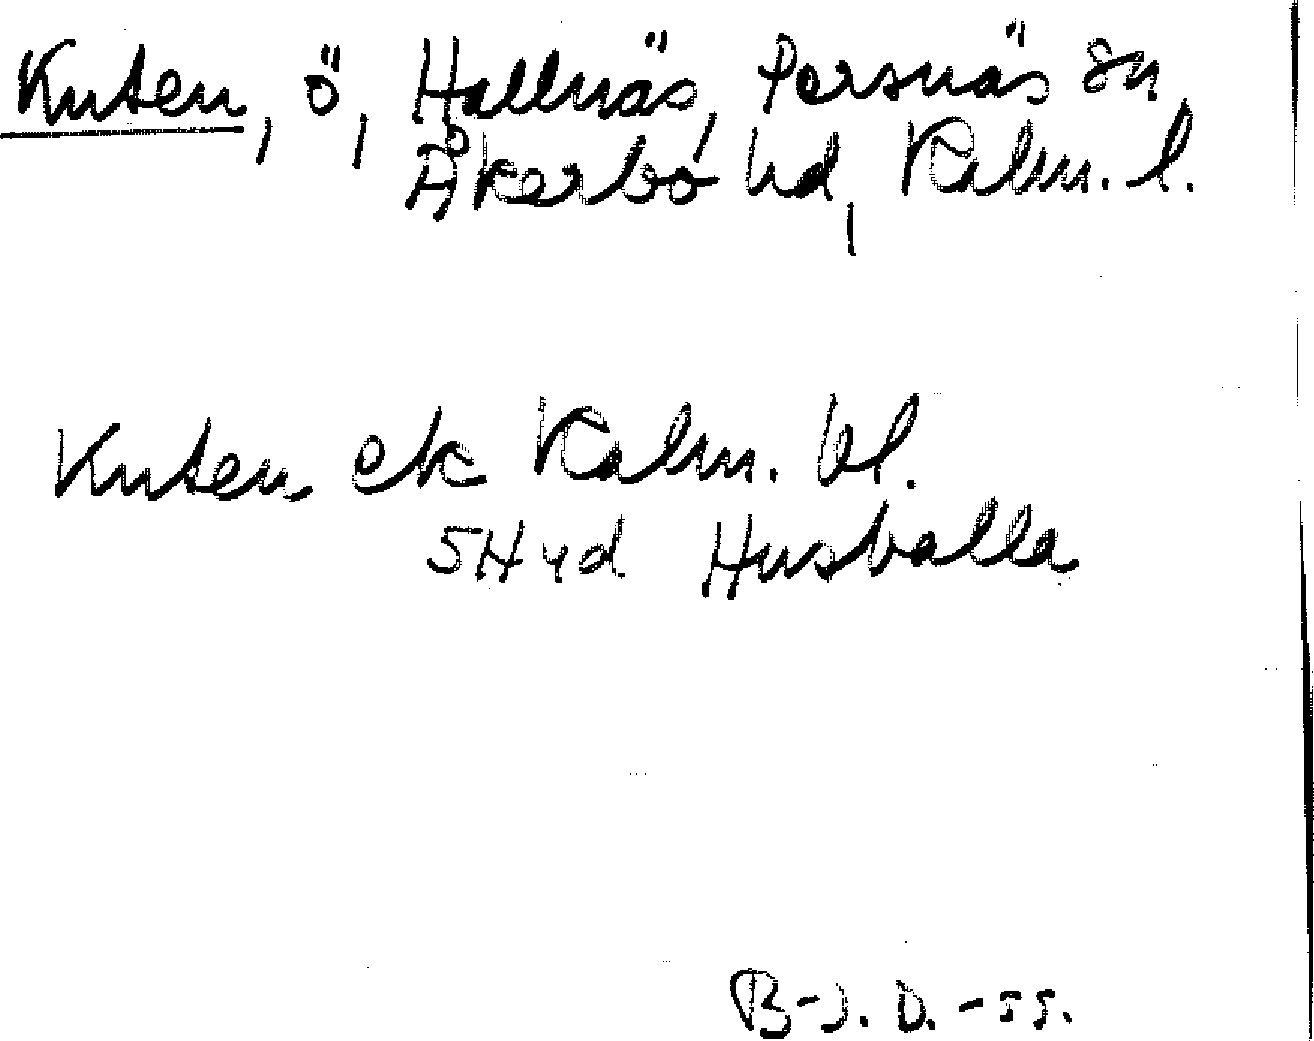 Knuten, ö, Hallnäs, Persnäs sn,
Åkerbo hd, Kalm. l.
Knuten ek Kalm. bl.
5H yd Husvalla
B-J. D. -55.